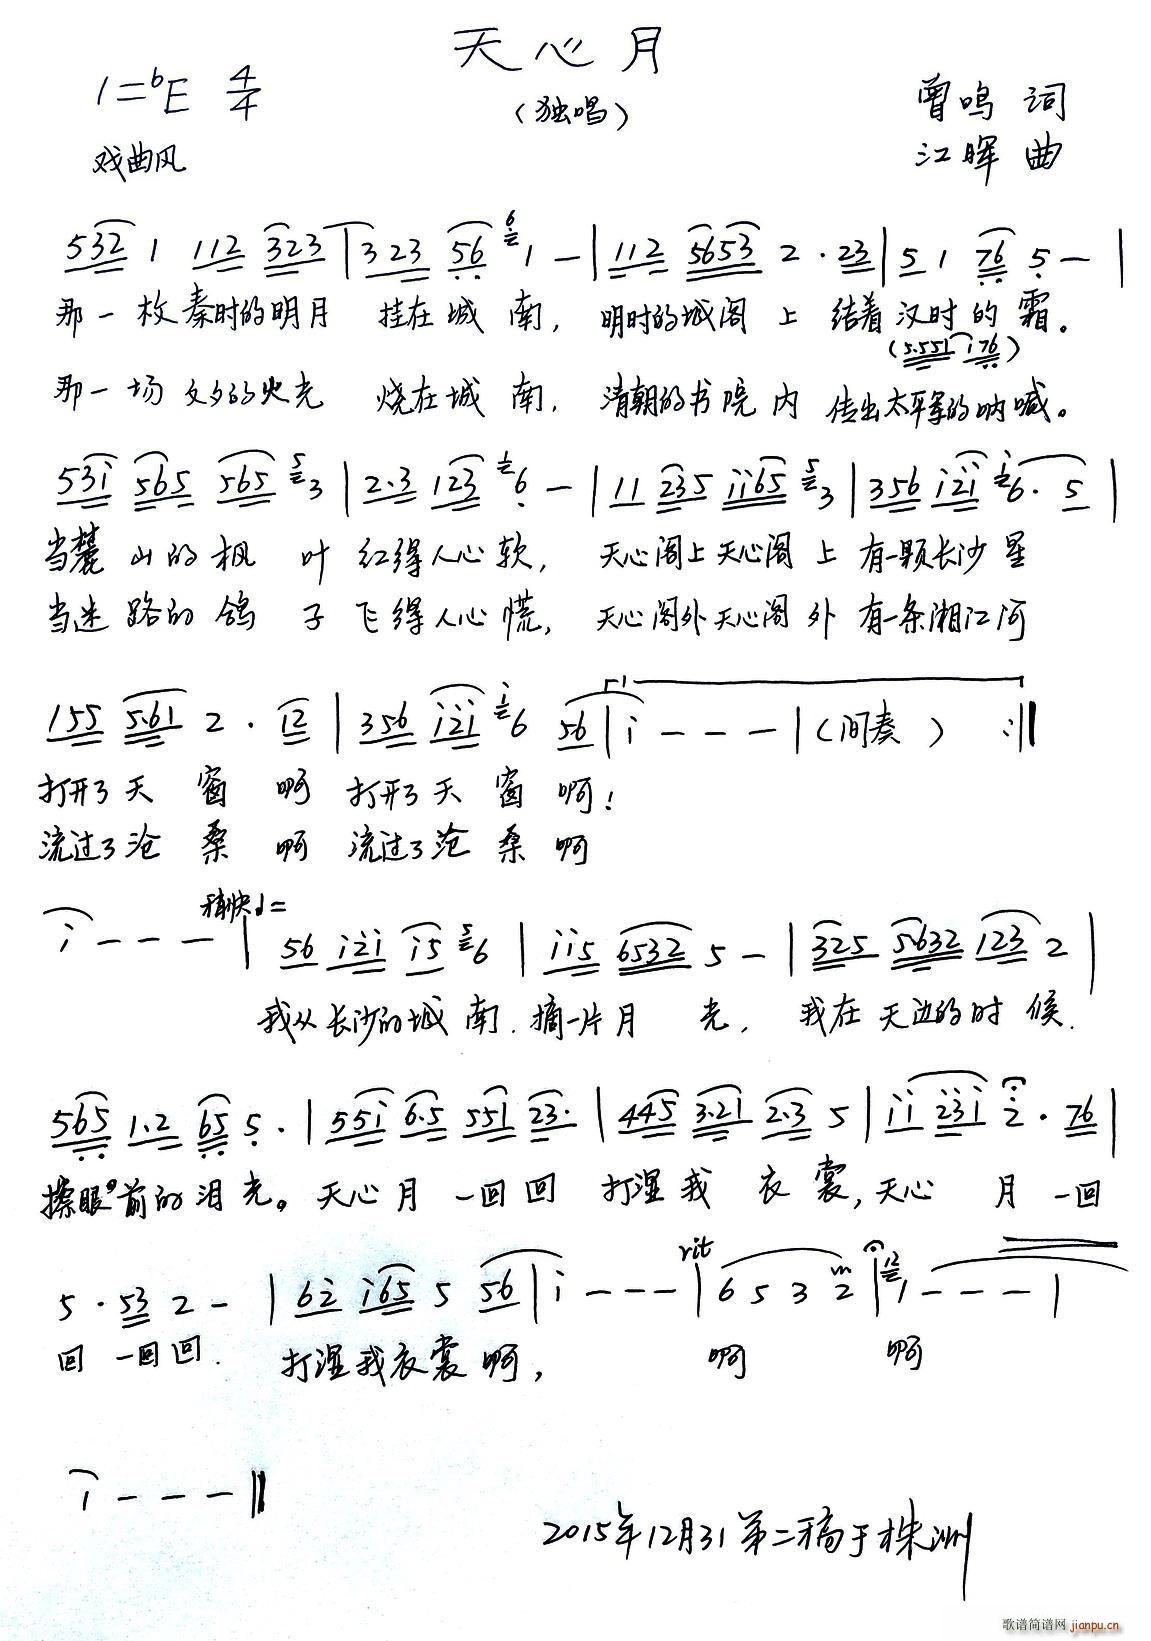 天心月
1=bE 4/4
（独唱）
曾鸣 词
戏曲风
江晖 曲
532 1 112 323 | 323 56 6 1 - | 112 5653 2 · 23 | 5 1 76 5 - |
那一枚秦时的明月 挂在城南， 明时的城阁上 结着汉时的霜。
(5.551 i76)
那一场文夕的火光 烧在城南， 清朝的书院内 传出太平军的呐喊。
53i 565 565 5 3 | 2·3 123 1 6 - | 11 235 ii65 5 3 | 356 i2i i 6 · 5 |
当麓山的枫叶 红得人心软， 天心阁上天心阁上 有一颗长沙星
当迷路的鸽子 飞得人心慌， 天心阁外天心阁外 有一条湘江河
155 5·61 2 · 12 | 356 i2i i 6 56 | i - - - | （间奏） :||
打开了天窗啊 打开了天窗啊！
流过了沧桑啊 流过了沧桑啊
稍快 d=
i - - - | 56 i2i i5 5 6 | ii5 6532 5 - | 325 5632 123 2 |
我从长沙的城南．摘一片月光， 我在天边的时候．
565 1·2 65 5 · | 55i 6·5 551 23· | 445 3·21 2·3 5 | ii 23i 2 · 76 |
擦眼前的泪光。天心月一回回 打湿我衣裳，天心月一回
rit
5 · 53 2 - | 62 i65 5 56 | i - - - | 6 5 3 2 | 12 1 - - - |
回一回回． 打湿我衣裳啊， 啊 啊
i - - - ||
2015年12月31第二稿于株洲
歌谱简谱网 jianpu.cn